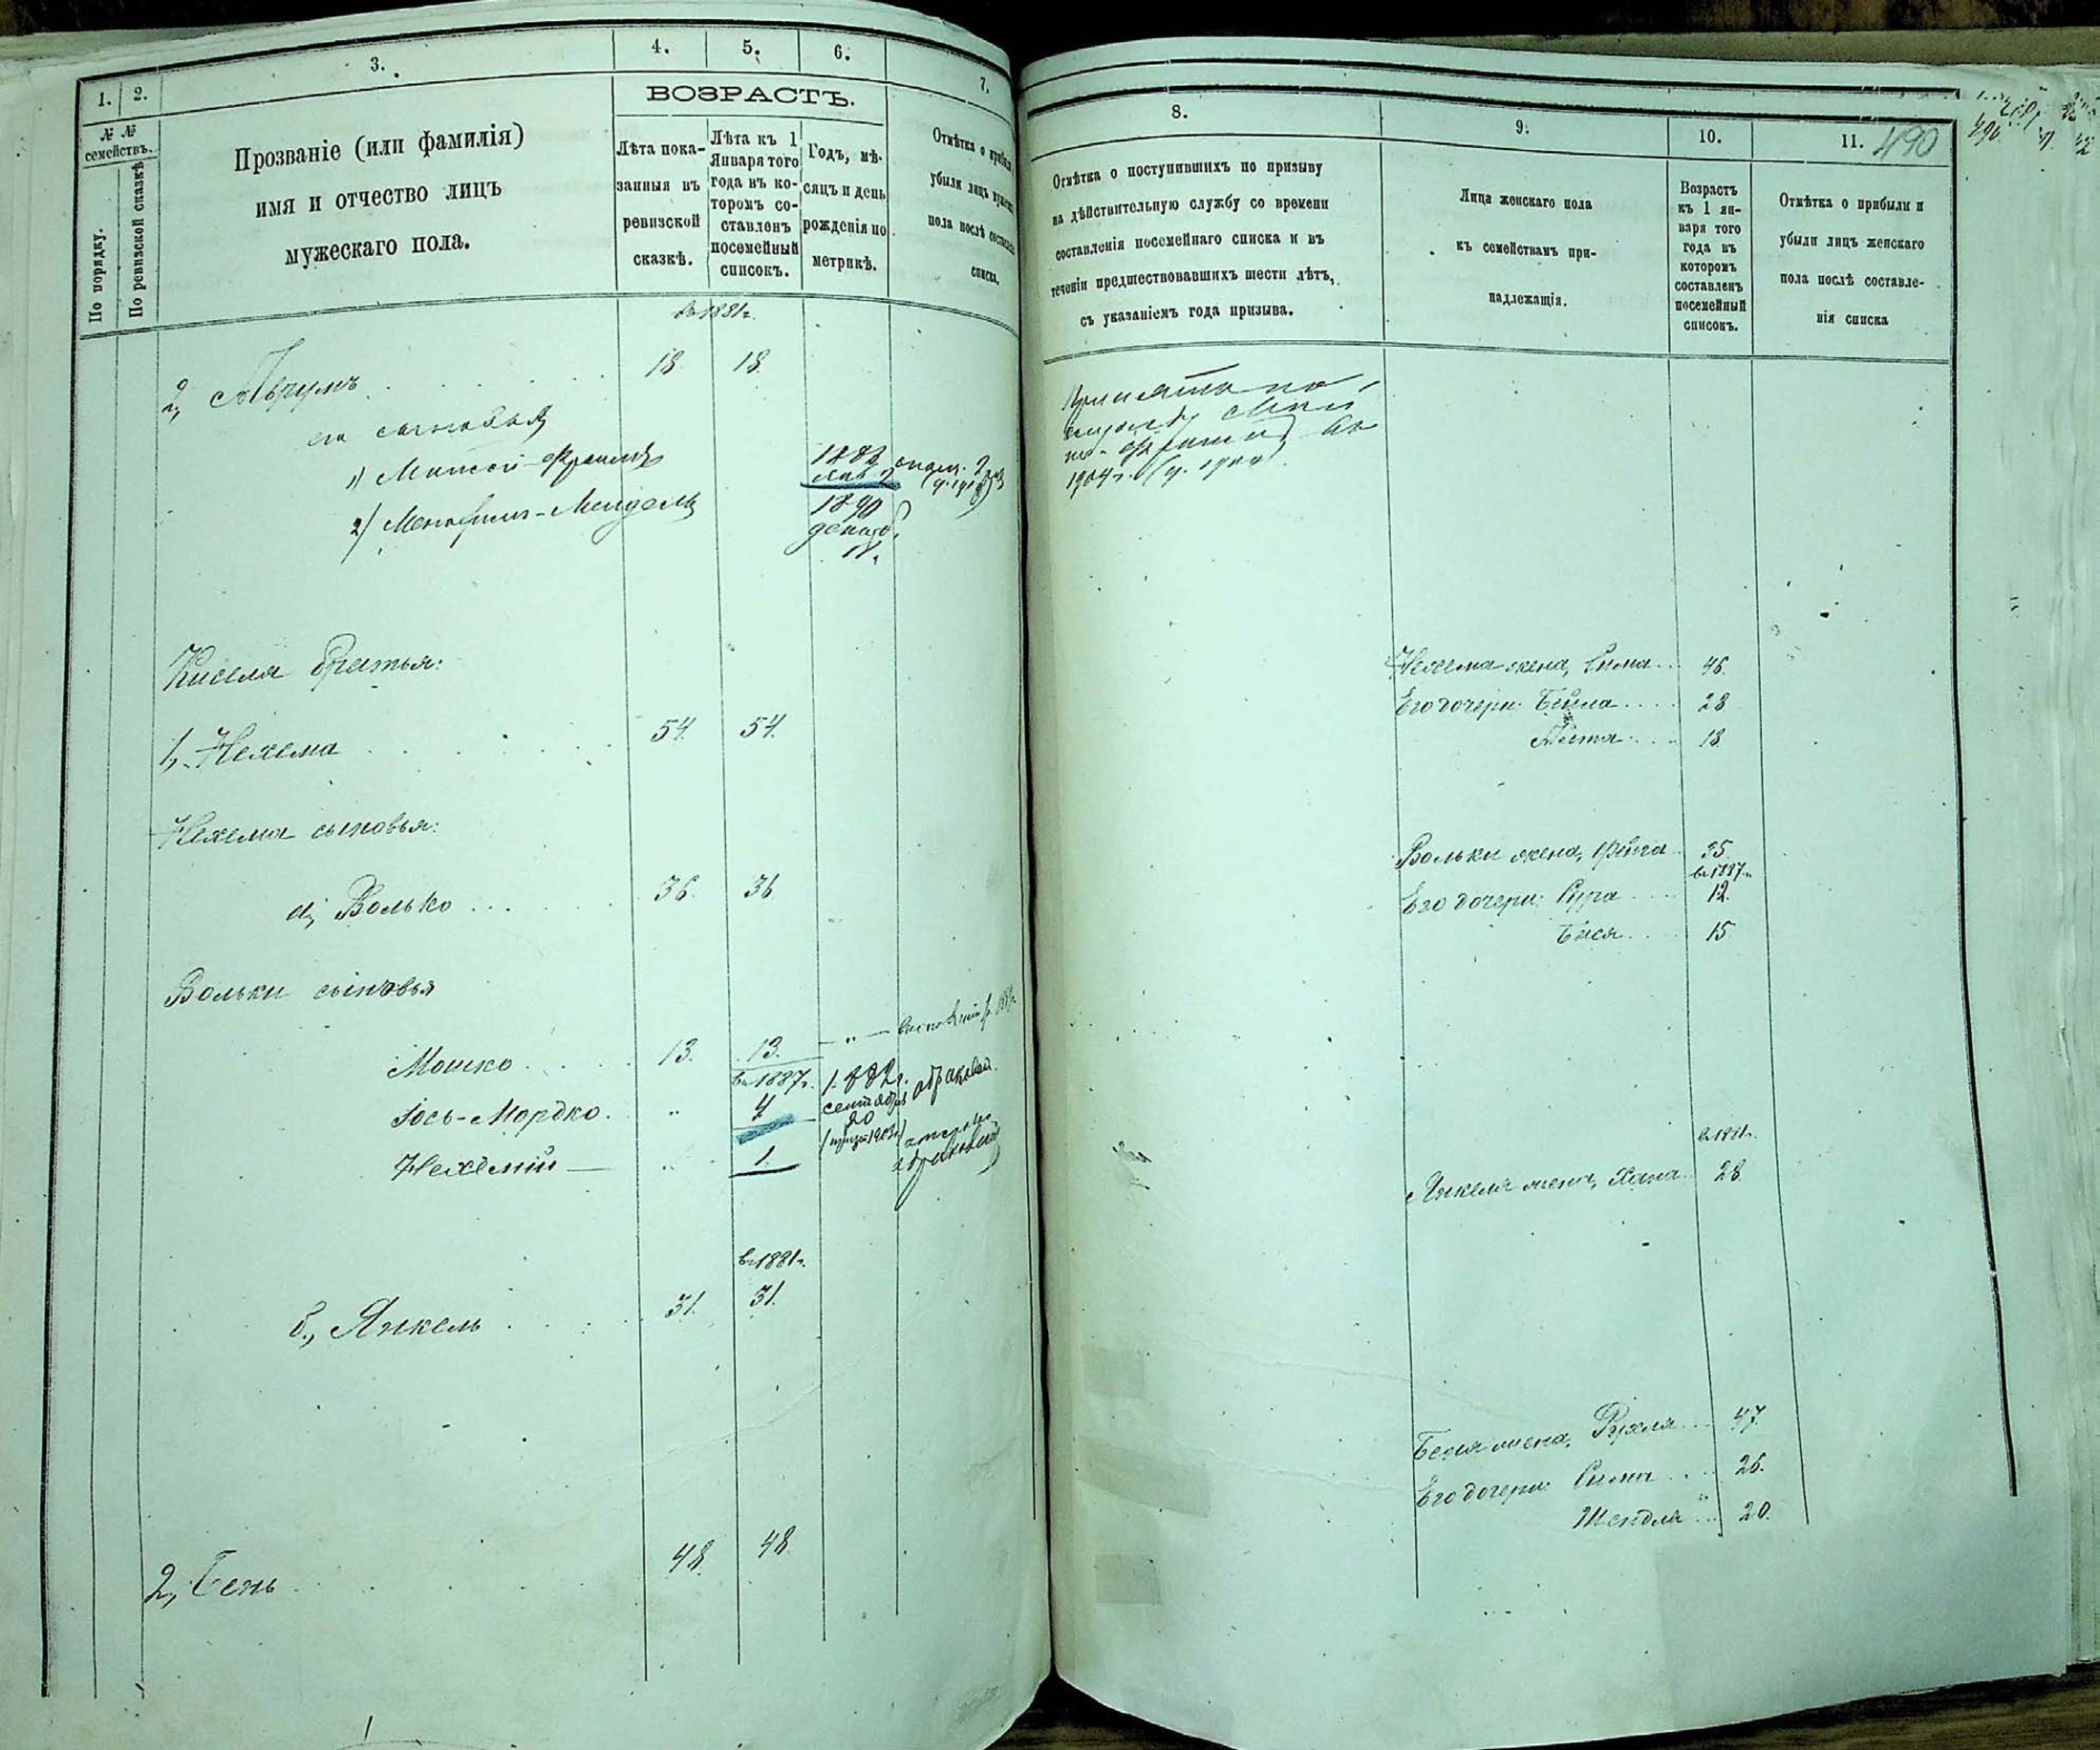 1. 2. 3. 4. 5. 6. 7.
№ № семействъ.
По порядку.
По ревизской сказкѣ
Прозваніе (или фамилія)
имя и отчество лицъ
мужескаго пола.
ВОЗРАСТЪ.
Лѣта пока-
занныя въ
ревизской
сказкѣ.
Лѣта къ 1
Января того
года въ ко-
торомъ со-
ставленъ
посемейный
списокъ.
Годъ, мѣ-
сяцъ и день
рожденія по
метрикѣ.
Отмѣтка о
убыли лицъ
пола послѣ
списка.
въ 1881г.
2, Абрумъ 18. 18.
его сыновья
1) Мошей-Фроимъ
2) Менахимъ-Мендель 1890
декаб.
Киселя братья:
1, Нехема 54. 54.
Нехемы сыновья:
а, Волько 36. 36
Вольки сыновья
Мошко 13. 13.
въ 1887г. 1882г.
Іось-Мордко. " 4 сентября обраковал.
20
Нехемій " 1.
въ 1881г.
б, Янкель 31. 31.
2, Бень 48. 48
8. 9. 10. 11. 490
Отмѣтка о поступившихъ по призыву
на дѣйствительную службу со времени
составленія посемейнаго списка и въ
теченіи предшествовавшихъ шести лѣтъ,
съ указаніемъ года призыва.
Лица женскаго пола
къ семействамъ при-
надлежащія.
Возрастъ
къ 1 ян-
варя того
года въ
которомъ
составленъ
посемейный
списокъ.
Отмѣтка о прибыли и
убыли лицъ женскаго
пола послѣ составле-
нія списка
1904г.
Нехема жена, Сима 46.
Его дочери: Бейла 28
13.
Вольки жена, Фейга 35.
въ 1887г.
Его дочери: Сура 12.
Бася 15.
въ 1881г.
Янкеля жена, Хана 28.
Беня жена, Рухля 47.
Его дочери: Сима 26.
Шендля 20.